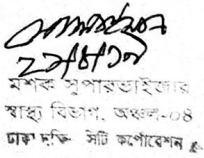 ২৯/৪/১৭
মশক সুপারভাইজার
স্বাস্থ্য বিভাগ, অঞ্চল-০৪
ঢাকা দক্ষিণ সিটি কর্পোরেশন